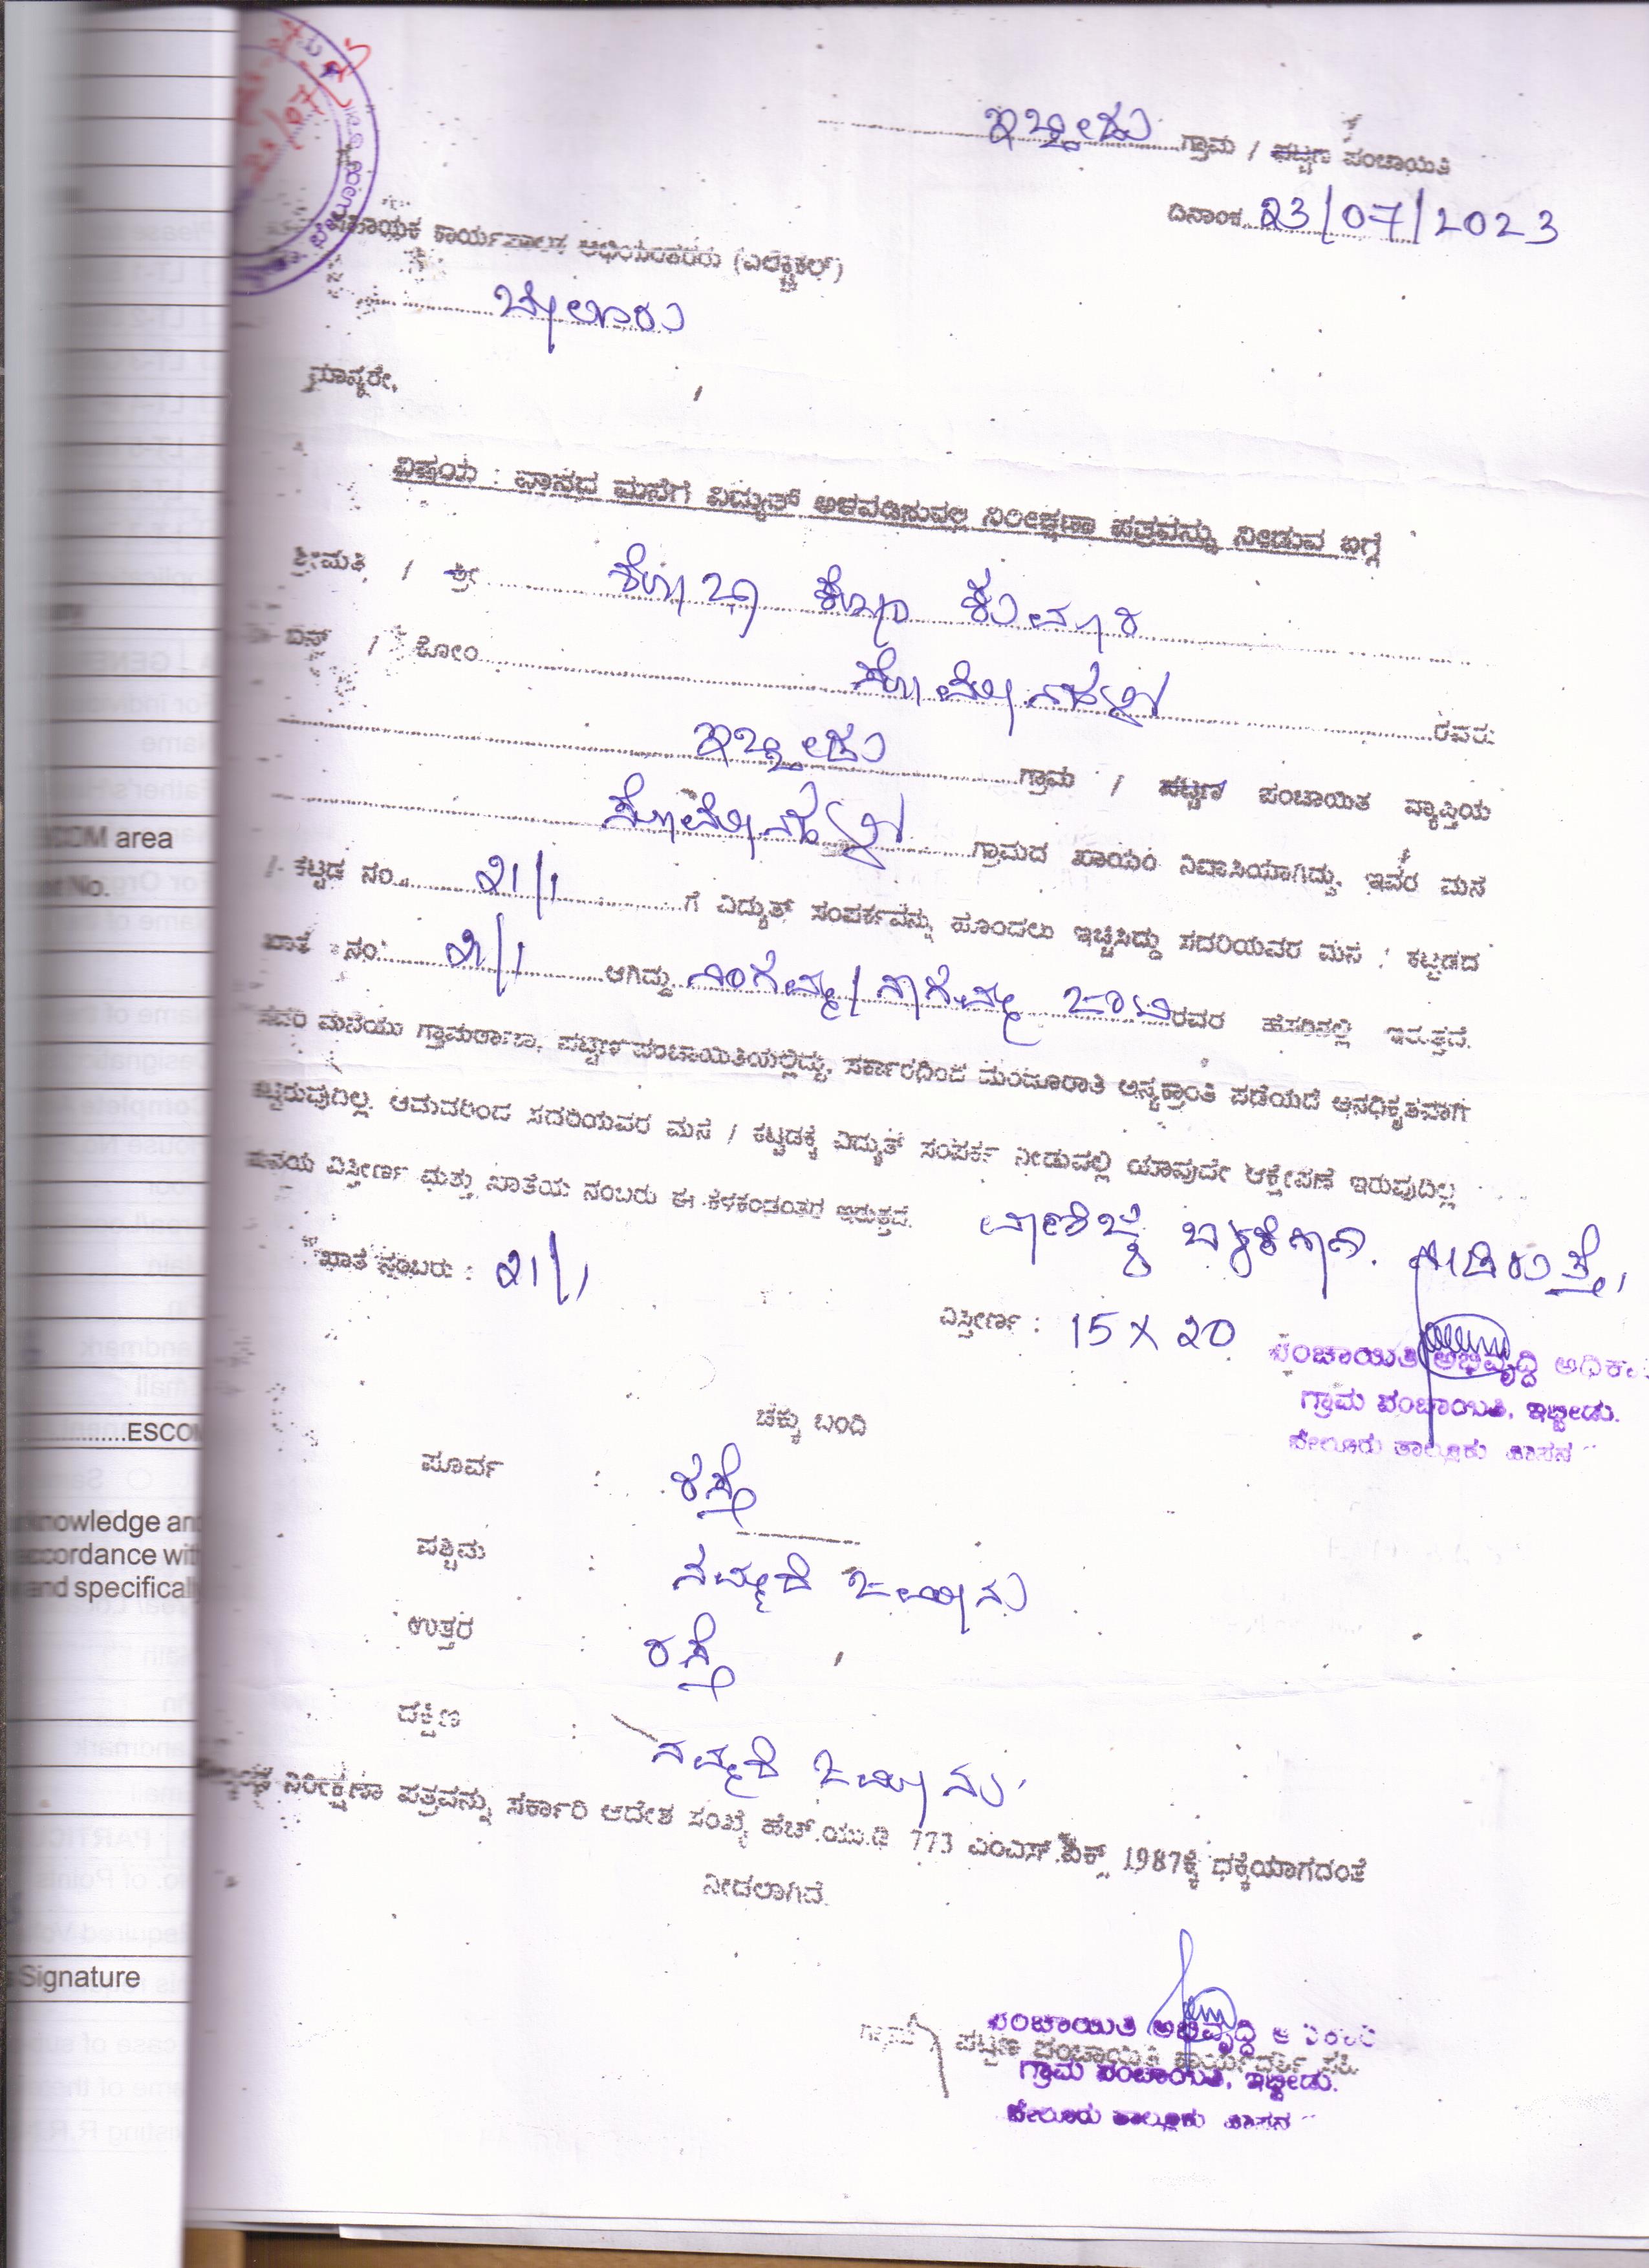 ಇಬ್ಬೀಡು ಗ್ರಾಮ / ಪಟ್ಟಣ ಪಂಚಾಯತಿ
ದಿನಾಂಕ 23/07/2023
ಸಹಾಯಕ ಕಾರ್ಯಪಾಲಕ ಅಭಿಯಂತರರು (ಎಲೆಕ್ಟ್ರಿಕಲ್)
ಬೇಲೂರು
ಮಾನ್ಯರೇ,
ವಿಷಯ : ವಾಸದ ಮನೆಗೆ ವಿದ್ಯುತ್ ಅಳವಡಿಸುವಲ್ಲಿ ನಿರೀಕ್ಷಣಾ ಪತ್ರವನ್ನು ನೀಡುವ ಬಗ್ಗೆ
ಶ್ರೀಮತಿ / ಶ್ರೀ ಕುಮಾರ
ಬಿನ್ / ಕೋಂ ರವರು
ಇಬ್ಬೀಡು ಗ್ರಾಮ / ಪಟ್ಟಣ ಪಂಚಾಯಿತ ವ್ಯಾಪ್ತಿಯ
ಗ್ರಾಮದ ಖಾಯಂ ನಿವಾಸಿಯಾಗಿದ್ದು, ಇವರ ಮನೆ
/ ಕಟ್ಟಡ ನಂ. 21/1 ಗೆ ವಿದ್ಯುತ್ ಸಂಪರ್ಕವನ್ನು ಹೊಂದಲು ಇಚ್ಚಿಸಿದ್ದು ಸದರಿಯವರ ಮನೆ / ಕಟ್ಟಡದ
ಖಾತೆ ನಂ 21/1 ಆಗಿದ್ದು ನಿಂಗಮ್ಮ / ನಾಗಮ್ಮ ಜಂಟಿ ರವರ ಹೆಸರಿನಲ್ಲಿ ಇರುತ್ತದೆ.
ಸದರಿ ಮನೆಯು ಗ್ರಾಮಠಾಣಾ, ಪಟ್ಟಣ ಪಂಚಾಯಿತಿಯಲ್ಲಿದ್ದು, ಸರ್ಕಾರದಿಂದ ಮಂಜೂರಾತಿ ಅನ್ಯಕ್ರಾಂತಿ ಪಡೆಯದೆ ಅನಧಿಕೃತವಾಗಿ
ಕಟ್ಟಿರುವುದಿಲ್ಲ. ಆದುದರಿಂದ ಸದರಿಯವರ ಮನೆ / ಕಟ್ಟಡಕ್ಕೆ ವಿದ್ಯುತ್ ಸಂಪರ್ಕ ನೀಡುವಲ್ಲಿ ಯಾವುದೇ ಆಕ್ಷೇಪಣೆ ಇರುವುದಿಲ್ಲ
ಮನೆಯ ವಿಸ್ತೀರ್ಣ ಮತ್ತು ಖಾತೆಯ ನಂಬರು ಈ ಕೆಳಕಂಡಂತಿರ ಇರುತ್ತದೆ. ವಾಣಿಜ್ಯ ಬಳಕೆಗಾಗಿ ನೀಡಿರುತ್ತೆ,
ಖಾತೆ ನಂಬರು : 21/1
ವಿಸ್ತೀರ್ಣ : 15 X 20
ಪಂಚಾಯಿತಿ ಅಭಿವೃದ್ಧಿ ಅಧಿಕಾ
ಗ್ರಾಮ ಪಂಚಾಯಿತಿ, ಇಬ್ಬೀಡು.
ಬೇಲೂರು ತಾಲ್ಲೂಕು ಹಾಸನ
ಚಕ್ಕು ಬಂದಿ
ಪೂರ್ವ : ರಸ್ತೆ
ಪಶ್ಚಿಮ : ನಮ್ಮದೆ ಜಮೀನು
ಉತ್ತರ : ರಸ್ತೆ
ದಕ್ಷಿಣ : ನಮ್ಮದೆ ಜಮೀನು
ನಿರೀಕ್ಷಣಾ ಪತ್ರವನ್ನು ಸರ್ಕಾರಿ ಆದೇಶ ಸಂಖ್ಯೆ ಹೆಚ್.ಯು.ಡಿ 773 ಎಂಎಸ್.ಪಿಕ್ಸ್ 1987ಕ್ಕೆ ಧಕ್ಕೆಯಾಗದಂತೆ
ನೀಡಲಾಗಿದೆ.
ಗ್ರಾಮ / ಪಟ್ಟಣ ಪಂಚಾಯಿತಿ ಕಾರ್ಯದರ್ಶಿ
ಪಂಚಾಯಿತಿ ಅಭಿವೃದ್ಧಿ ಅಧಿಕಾರಿ
ಗ್ರಾಮ ಪಂಚಾಯಿತಿ, ಇಬ್ಬೀಡು.
ಬೇಲೂರು ತಾಲ್ಲೂಕು ಹಾಸನ
COM area
No.
ESCOM
knowledge and
accordance with
and specifically
Signature